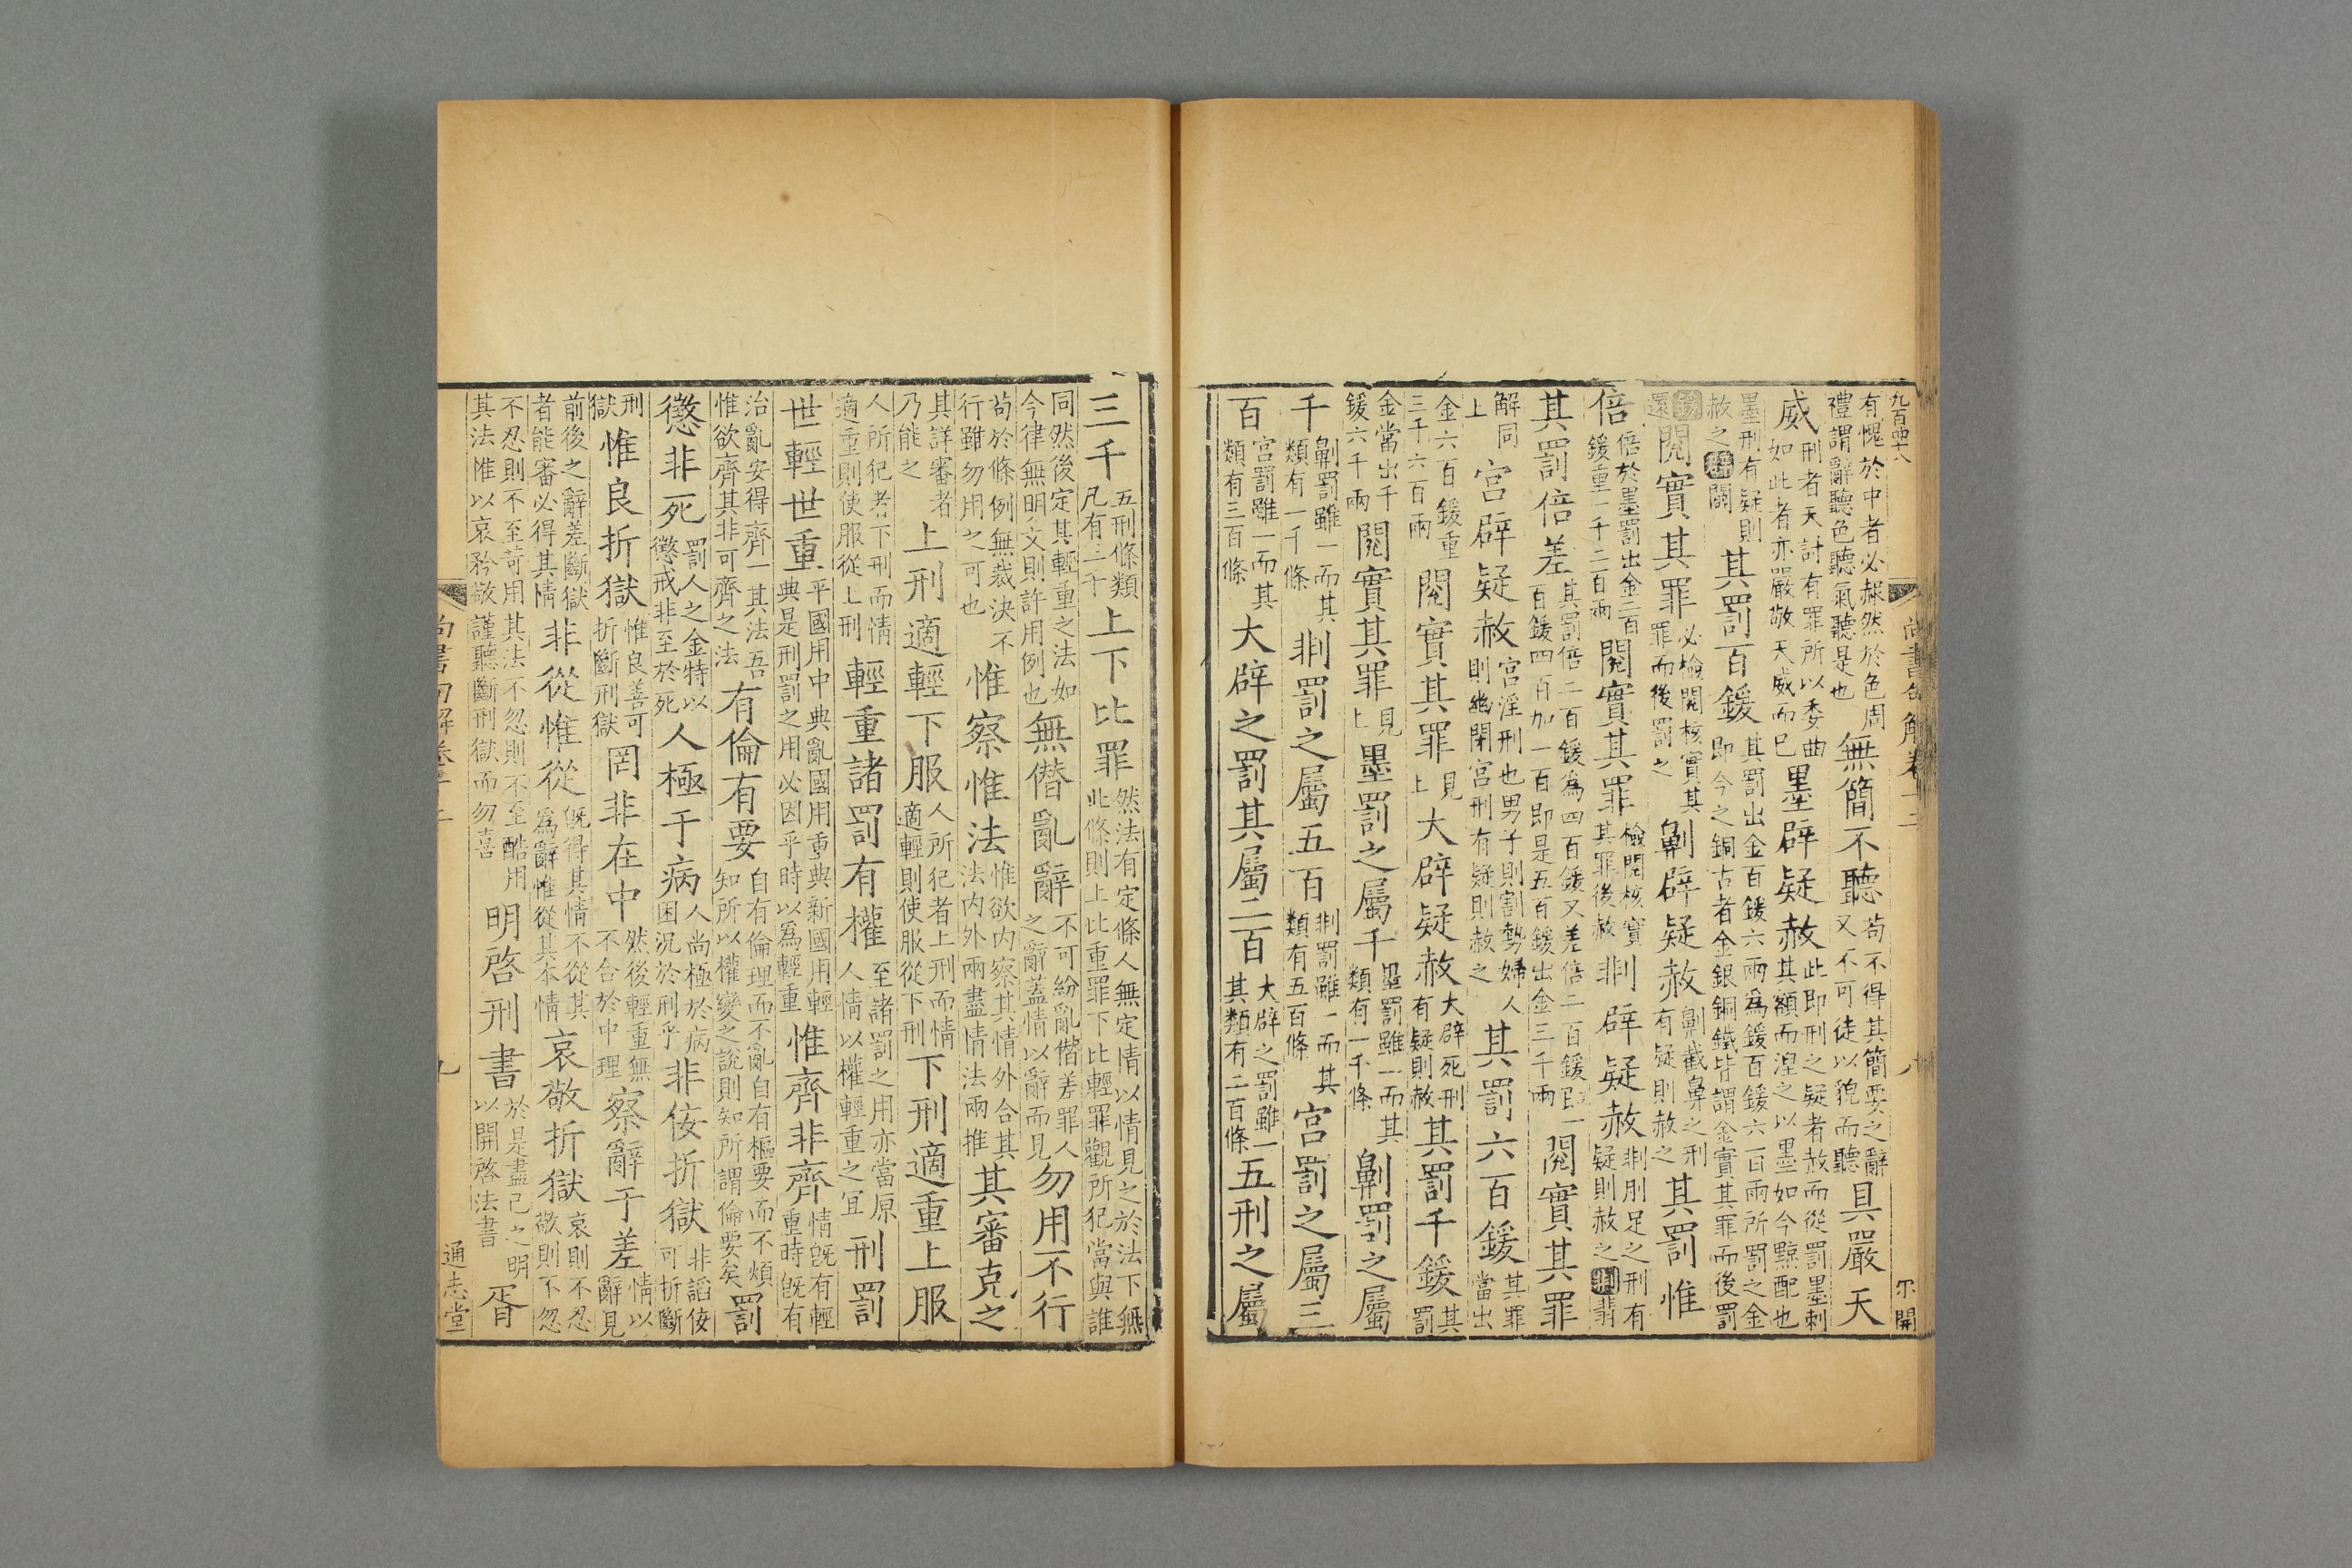 九百四十八
尚書句解卷十二
八
有愧於中者必赧然於色周禮謂辭聽色聽氣聽是也無簡不聽苟不得其簡要之辭又不可徒以貌而聽具嚴天
威刑者天討有罪所以委曲如此者亦嚴敬天威而已墨辟疑赦此即刑之疑者赦而從罰墨刺其顙而涅之以墨如今黥配也
墨刑有疑則赦之辟闢其罰百鍰其罰出金百鍰六兩為鍰百鍰六百兩所罰之金即今之銅古者金銀銅鐵皆謂金實其罪而後罰
鍰還閱實其罪必檢閱核實其罪而後罰之劓辟疑赦劓截鼻之刑有疑則赦之其罰惟
倍倍於墨罰出金二百鍰重一千二百兩閱實其罪檢閱核實其罪後赦剕辟疑赦剕刖足之刑有疑則赦之剕翡
其罰倍差其罰倍二百鍰為四百鍰又差倍二百鍰即一百鍰四百加一百即是五百鍰出金三千兩閱實其罪
解同上宮辟疑赦宮淫刑也男子則割勢婦人則幽閉宮刑有疑則赦之其罰六百鍰其罪當出
金六百鍰重三千六百兩閱實其罪見上大辟疑赦大辟死刑有疑則赦其罰千鍰其罰
金當出千鍰六千兩閱實其罪見上墨罰之屬千墨罰雖一而其類有一千條劓罰之屬
千劓罰雖一而其類有一千條剕罰之屬五百剕罰雖一而其類有五百條宮罰之屬三
百宮罰雖一而其類有三百條大辟之罰其屬二百大辟之罰雖一其類有二百條五刑之屬
三千五刑條類凡有三千上下比罪然法有定條人無定情以情見之於法下無此條則上比重罪下比輕罪觀所犯當與誰
同然後定其輕重之法如今律無明文則許用例也無僭亂辭不可紛亂僭差罪人之辭蓋情以辭而見勿用不行
苟於條例無裁決不行雖勿用之可也惟察惟法惟欲內察其情外合其法內外兩盡情法兩推其審克之
其詳審者乃能之上刑適輕下服人所犯者上刑而情適輕則使服從下刑下刑適重上服
人所犯者下刑而情適重則使服從上刑輕重諸罰有權至諸罰之用亦當原人情以權輕重之宜刑罰
世輕世重平國用中典亂國用重典新國用輕典是刑罰之用必因乎時以為輕重惟齊非齊情既有輕重時既有
治亂安得齊一其法吾惟欲齊其非可齊之法有倫有要自有倫理而不亂自有樞要而不煩知所以權變之說則知所謂倫要矣罰
懲非死罰人之金特以懲戒非至於死人極于病人尚極於病困況於刑乎非佞折獄非諂佞可折斷
刑獄惟良折獄惟良善可折斷刑獄罔非在中然後輕重無不合於中理察辭于差情以辭見
前後之辭差斷獄者能審必得其情非從惟從既得其情不從其為辭惟從其本情哀敬折獄哀則不忍敬則不忽
不忍則不至苛用其法不忽則不至酷用其法惟以哀矜敬謹聽斷刑獄而勿喜明啓刑書於是盡己之明以開啓法書胥
尚書句解卷十二
九
通志堂